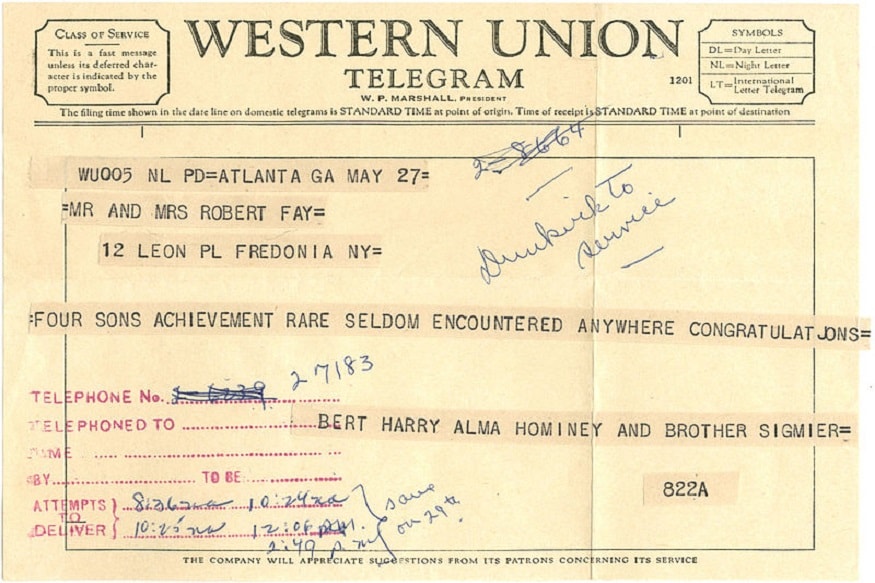 CLASS OF SERVICE
This is a fast message
unless its deferred char-
acter is indicated by the
proper symbol.
WESTERN UNION
TELEGRAM
W. P. MARSHALL, PRESIDENT
1201
SYMBOLS
DL=Day Letter
NL=Night Letter
LT=International Letter Telegram
The filing time shown in the date line on domestic telegrams is STANDARD TIME at point of origin. Time of receipt is STANDARD TIME at point of destination
2-8664
WU005 NL PD=ATLANTA GA MAY 27=
=MR AND MRS ROBERT FAY=
12 LEON PL FREDONIA NY=
Dunkirk to
service
=FOUR SONS ACHIEVEMENT RARE SELDOM ENCOUNTERED ANYWHERE CONGRATULATJONS=
TELEPHONE No. 27183
TELEPHONED TO
BERT HARRY ALMA HOMINEY AND BROTHER SIGMIER=
TIME
BY TO BE
822A
ATTEMPTS TO DELIVER
8:36 10:24
10:25 12:06 P.M.
2:49 p.m.
save
on 29th
THE COMPANY WILL APPRECIATE SUGGESTIONS FROM ITS PATRONS CONCERNING ITS SERVICE